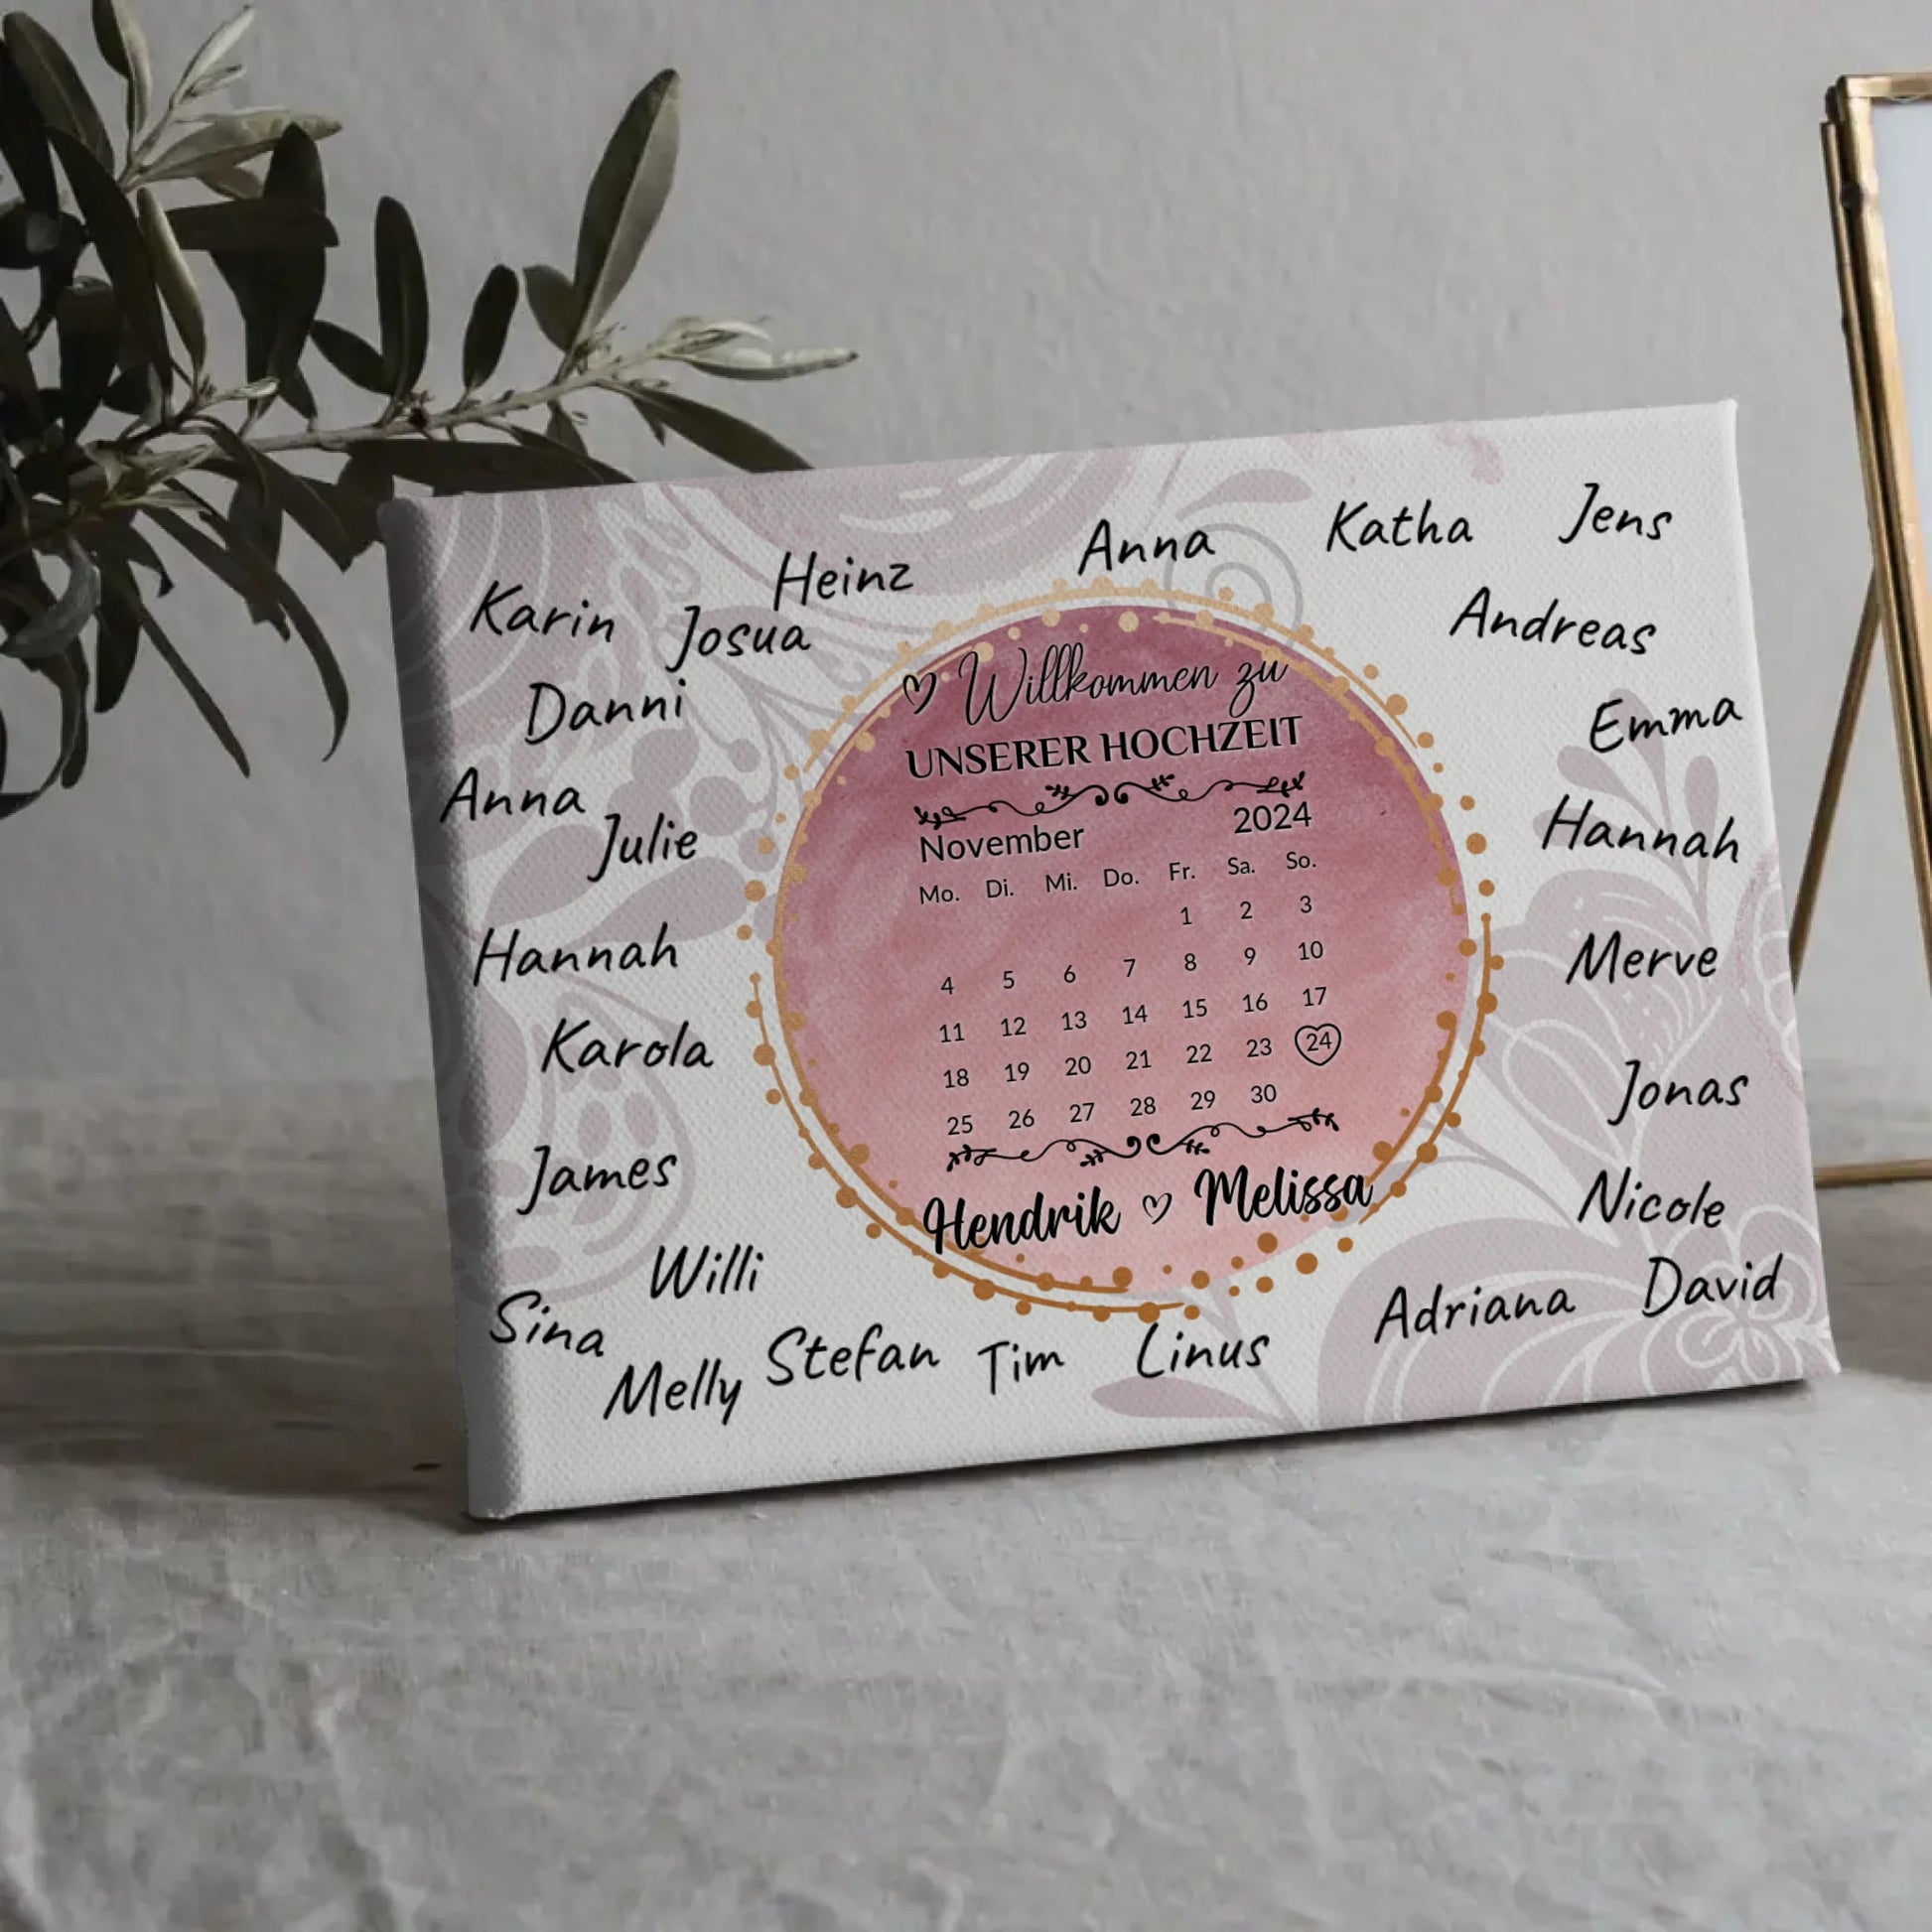 Jens
Katha
Anna
Heinz
Karin
Josua
Andreas
Danni
Emma
Anna
Julie
Hannah
Hannah
Merve
Karola
Jonas
James
Nicole
Willi
David
Adriana
Sina
Stefan
Tim
Linus
Melly
Willkommen zu
UNSERER HOCHZEIT
November 2024
Mo. Di. Mi. Do. Fr. Sa. So.
1 2 3
4 5 6 7 8 9 10
11 12 13 14 15 16 17
18 19 20 21 22 23 24
25 26 27 28 29 30
Hendrik ♡ Melissa